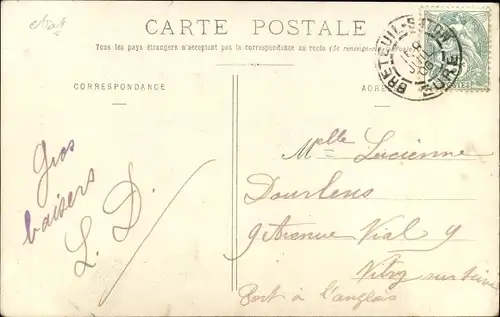 CARTE POSTALE
Tous les pays étrangers n'acceptent pas la correspondance au recto (Se renseigner à la Poste)
CORRESPONDANCE
ADRE
BRETEUIL-S-ITON
EURE
Gros
baisers
L. D.
Melle Lucienne
Dourlens
9 Avenue Vial 9
Vitry sur Seine
Port à l'anglais